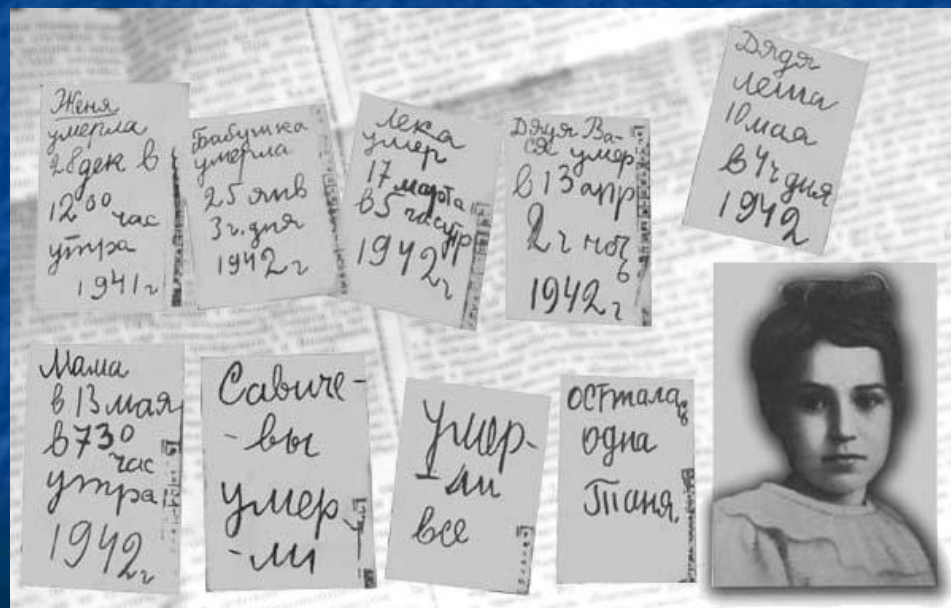 Женя
умерла
28 дек в
12 00 час
утра
1941 г
Бабушка
умерла
25 янв
3 ч. дня
1942 г
Лека
умер
17 марта
в 5 час утр
1942 г
Дядя Ва-
ся умер
в 13 апр
2 ч ноч
ь
1942 г
Дядя
Леша
10 мая
в 4 ч дня
1942
Мама
в 13 мая
в 7 30
час
утра
1942 г
Савиче-
-вы
умер
-ли
Умер-
ли
все
Осталась
одна
Таня